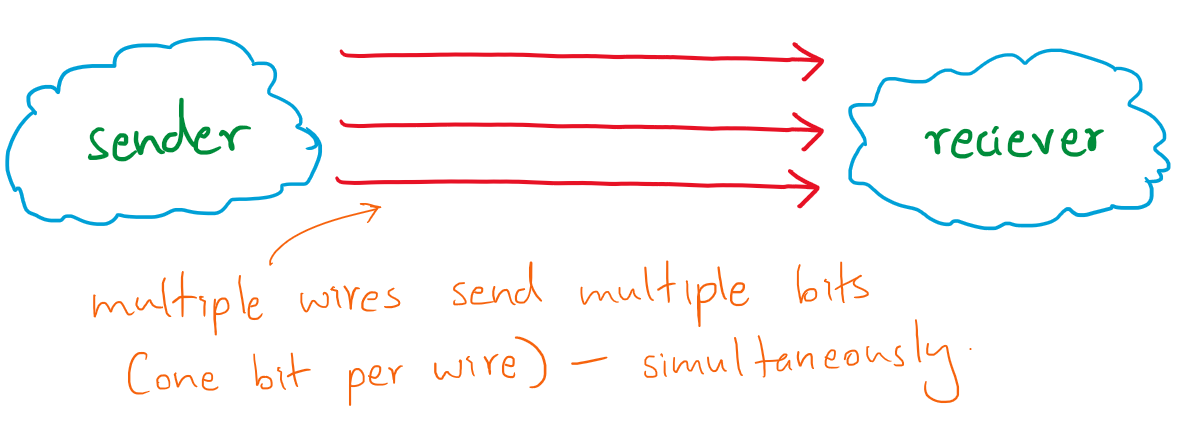 sender
reciever
multiple wires send multiple bits
(one bit per wire) — simultaneously.